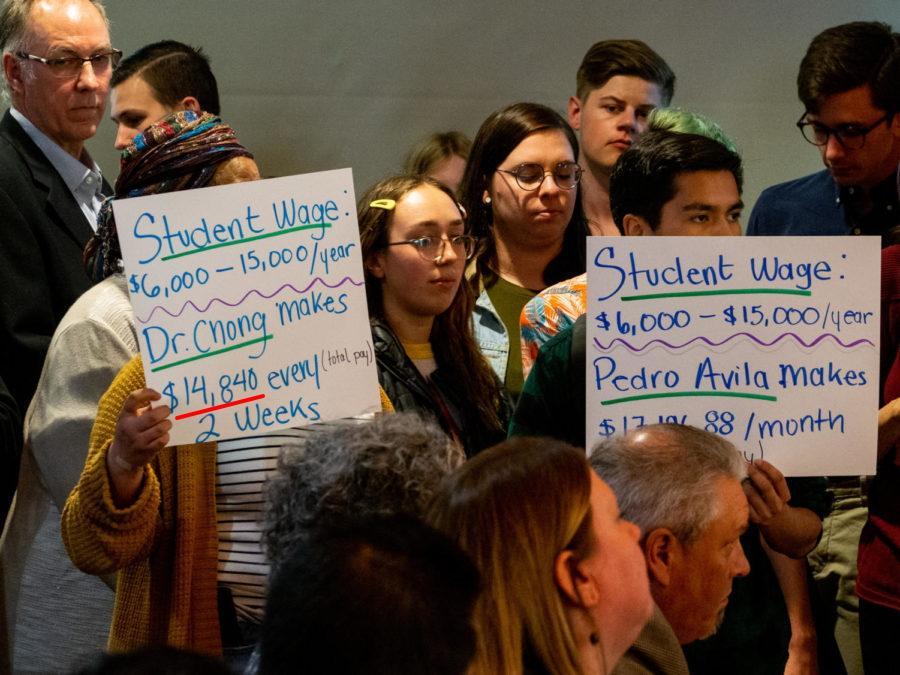 Student Wage:
$6,000 – 15,000/year
Dr. Chong makes
$14,840 every (total pay)
2 Weeks
Student Wage:
$6,000 – $15,000/year
Pedro Avila makes
88/month